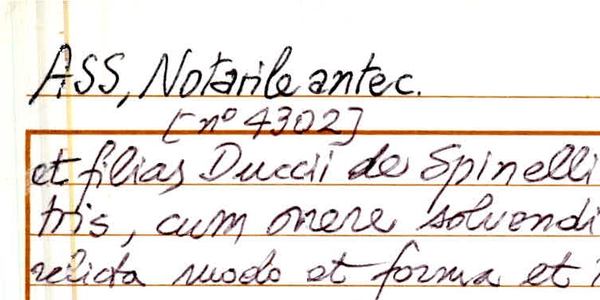 ASS, Notarile antec.
[nº 4302]
et filias Duccii de Spinelli
tris, cum onere solvendi
relicta modo et forma et